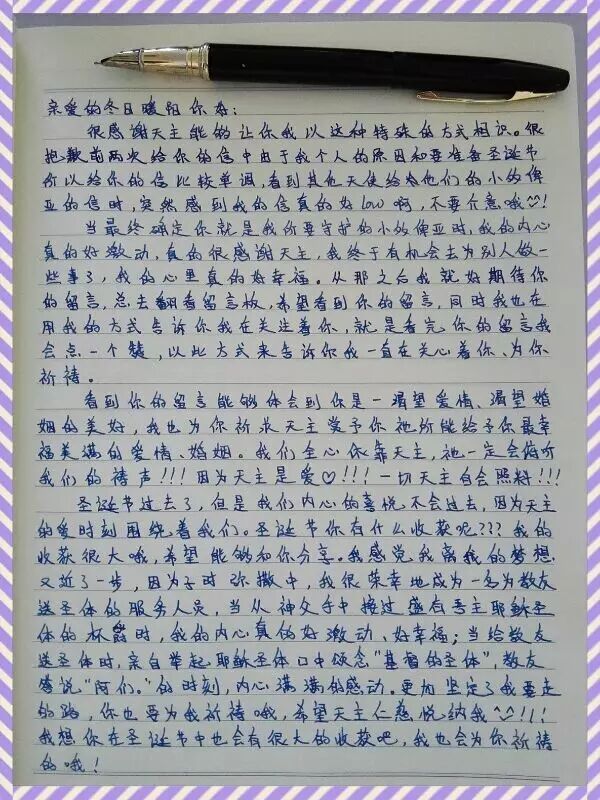 亲爱的冬日暖阳你好：
很感谢天主能够让你我以这种特殊的方式相识。很
抱歉前两次给你的信中由于我个人的原因和要准备圣诞节
所以给你的信比较单调，看到其他天使给他们的小的俾
亚的信时，突然感到我的信真的好low啊，不要介意哦^^!
当最终确定你就是我所要守护的小的俾亚时，我的内心
真的好激动，真的很感谢天主，我终于有机会去为别人做一
些事了，我的心里真的好幸福。从那之后我就好期待你
的留言，总去翻看留言板，希望看到你的留言，同时我也在
用我的方式告诉你我在关注着你，就是看完你的留言我
会点一个赞，以此方式来告诉你我一直在关心着你、为你
祈祷。
看到你的留言能够体会到你是一渴望爱情、渴望婚
姻的美好，我也为你祈求天主赏予你祂所能给予你最幸
福美满的爱情、婚姻。我们全心依靠天主，祂一定会俯听
我们的祷声!!!因为天主是爱♡!!!一切天主自会照料!!!
圣诞节过去了，但是我们内心的喜悦不会过去，因为天主
的爱时刻围绕着我们。圣诞节你有什么收获呢???我的
收获很大哦，希望能够和你分享。我感觉我离我的梦想
又近了一步，因为子时弥撒中，我很荣幸地成为一名为教友
送圣体的服务人员，当从神父手中接过盛有吾主耶稣圣
体的杯爵时，我的内心真的好激动、好幸福；当给教友
送圣体时，亲自举起耶稣圣体口中颂念“基督的圣体”，教友
答说“阿们。”的时刻，内心满满的感动。更加坚定了我要走
的路，你也要为我祈祷哦，希望天主仁慈悦纳我^^!!!
我想你在圣诞节中也会有很大的收获吧，我也会为你祈祷
的哦！